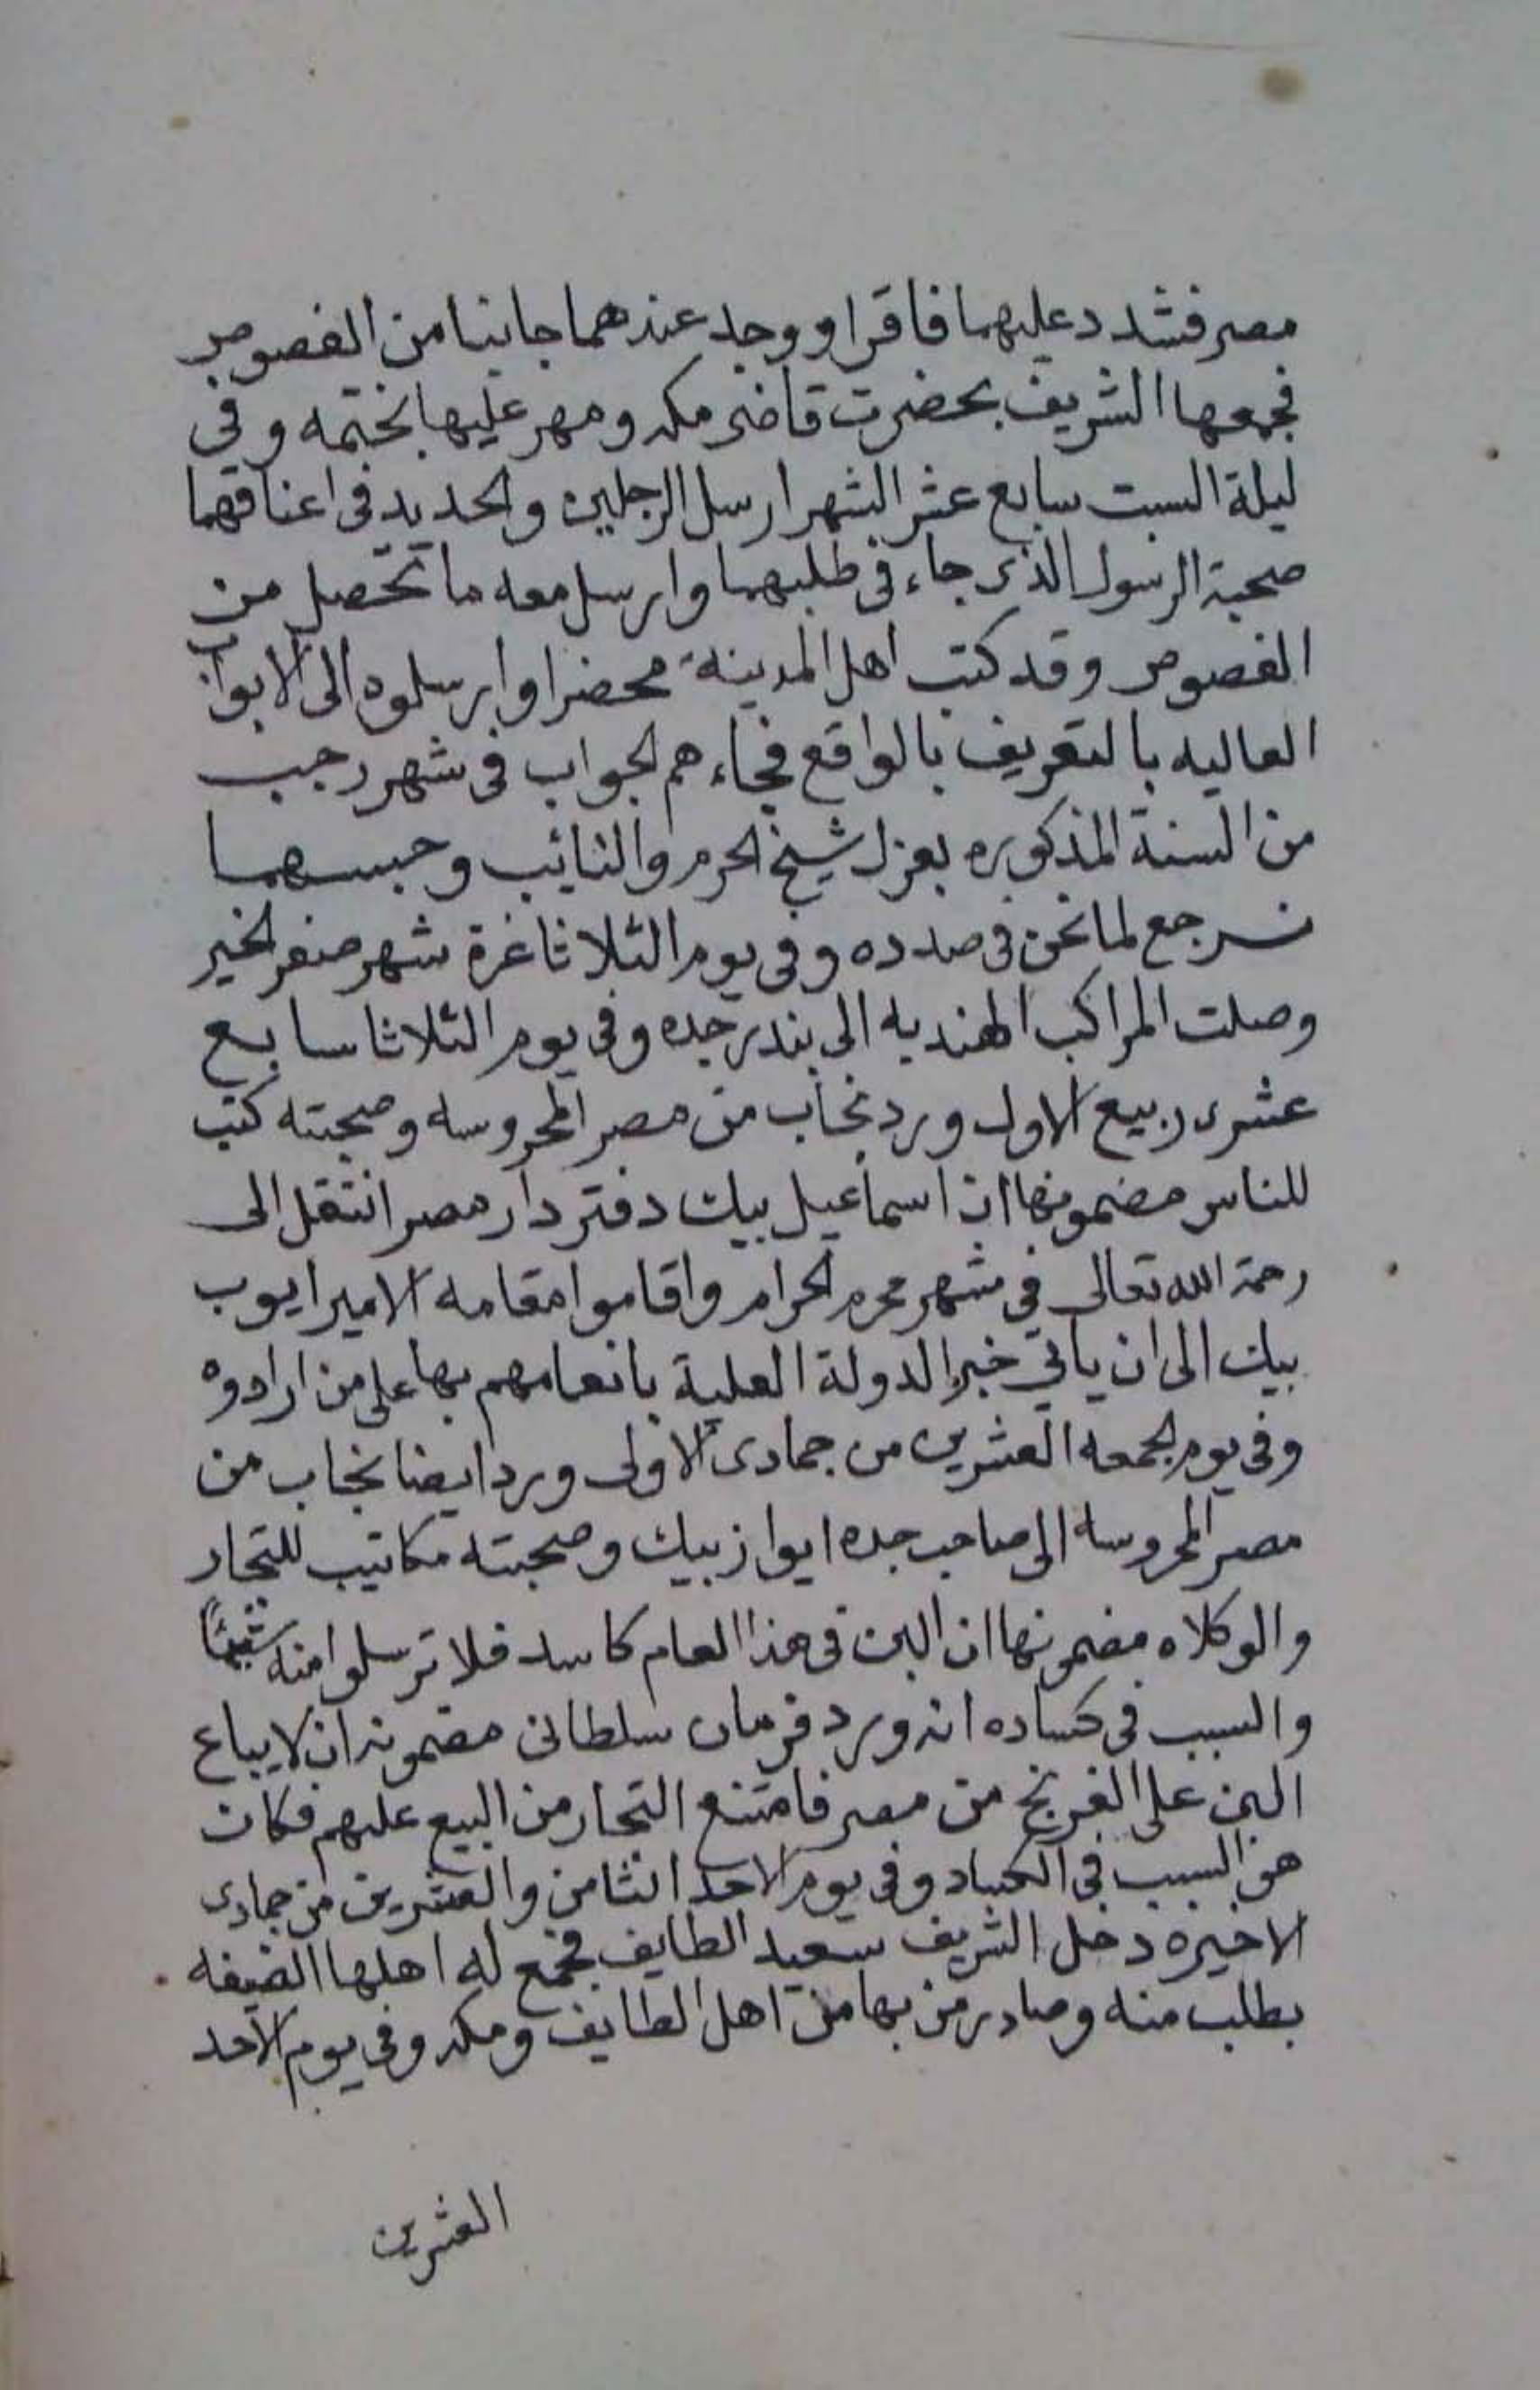 مصر فشدد عليهما فاقرا ووجد عندهما جانبا من الفصوص
فجمعها الشريف بحضرت قاضى مكه ومهر عليها بختمه وفى
ليلة السبت سابع عشر الشهر ارسل الرجلين والحديد فى اعناقهما
صحبة الرسول الذى جاء فى طلبهما وارسل معه ما تحصل من
الفصوص وقد كتب اهل المدينة محضرا وارسلوه الى الابواب
العاليه بالتعريف بالواقع فجاءهم الجواب فى شهر رجب
من السنة المذكوره بعزل شيخ الحرم والنائب وحبسهما
نرجع لما نحن فى صدده وفى يوم الثلاثا غرة شهر صفر الخير
وصلت المراكب الهنديه الى بندر جده وفى يوم الثلاثا سابع
عشرى ربيع الاول ورد نجاب من مصر المحروسه وصحبته كتب
للناس مضمونها ان اسماعيل بيك دفتردار مصر انتقل الى
رحمة الله تعالى فى شهر محرم الحرام واقاموا مقامه الامير ايوب
بيك الى ان ياتي خبر الدولة العلية بانعامهم بها على من ارادوه
وفى يوم الجمعه العشرين من جمادى الاولى ورد ايضا نجاب من
مصر المحروسه الى صاحب جده ايواز بيك وصحبته مكاتيب للتجار
والوكلاء مضمونها ان البن فى هذا العام كاسد فلا ترسلوا منه شيئاً
والسبب فى كساده انه ورد فرمان سلطانى مضمونه ان لا يباع
البن على الفرنج من مصر فامتنع التجار من البيع عليهم فكان
هو السبب فى الكساد وفى يوم الاحد الثامن والعشرين من جمادى
الاخيره دخل الشريف سعيد الطايف فجمع له اهلها الضيفه
بطلب منه وصادر من بها من اهل الطايف ومكه وفى يوم الاحد
العشرين